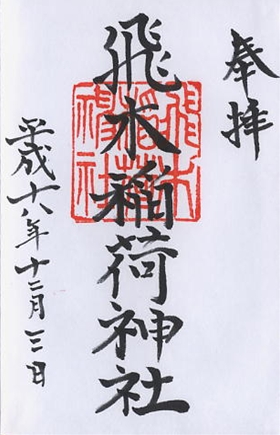 奉拝
飛木稲荷神社
平成十八年十二月三日
飛木
稲荷
神社